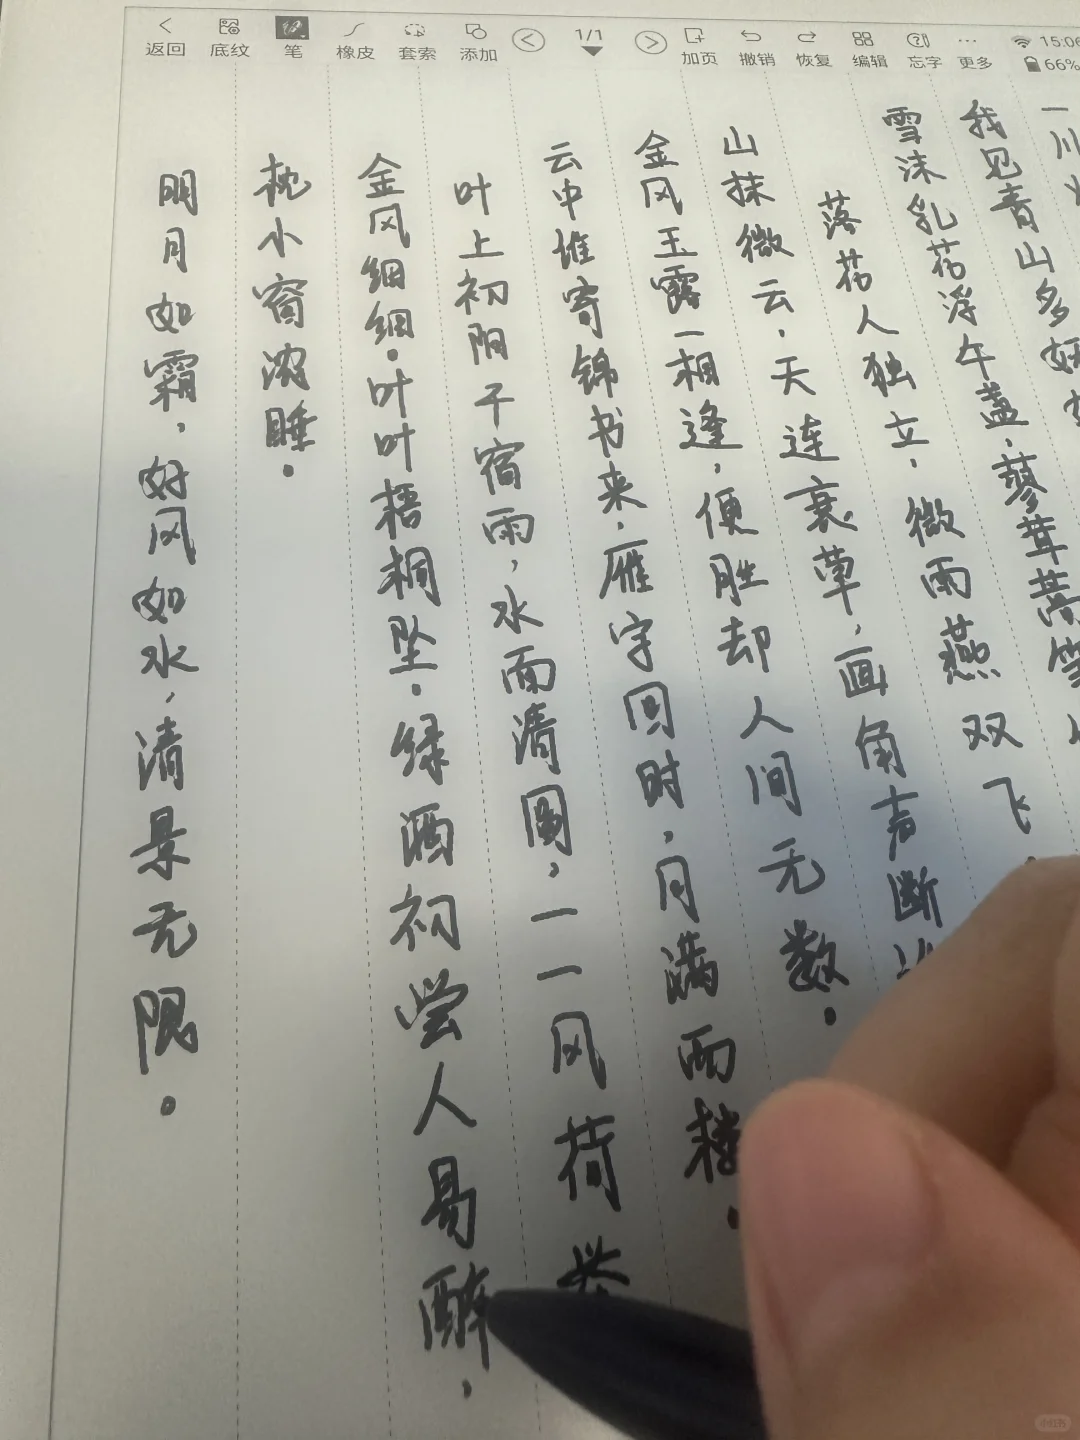 返回 底纹 笔 橡皮 套索 添加 1/1 加页 撤销 恢复 编辑 忘字 更多 15:06 66%
一川
我见青山多妩
雪沫乳花浮午盏，蓼茸蒿笋
落花人独立，微雨燕双飞。
山抹微云，天连衰草，画角声断
金风玉露一相逢，便胜却人间无数。
云中谁寄锦书来，雁字回时，月满西楼。
叶上初阳干宿雨，水面清圆，一一风荷举
金风细细。叶叶梧桐坠。绿酒初尝人易醉，
枕小窗浓睡。
明月如霜，好风如水，清景无限。
小红书